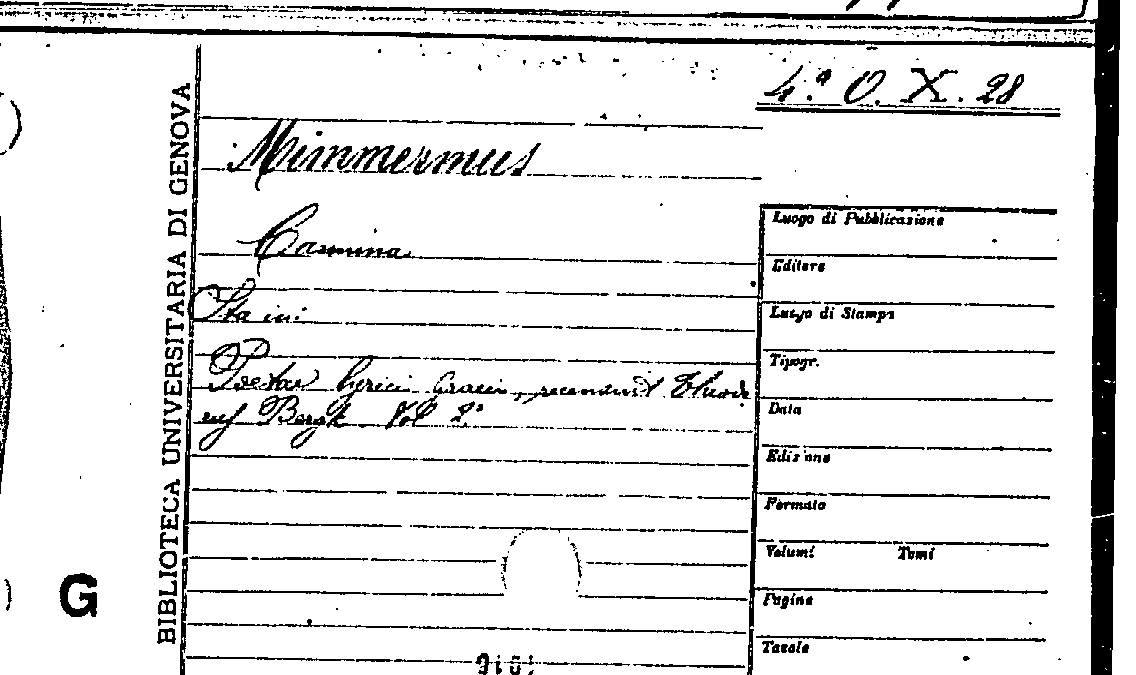 4.ª O. X. 28
BIBLIOTECA UNIVERSITARIA DI GENOVA
Mimmermus
Carmina
Sta in:
Poetae lyrici Graeci, recensuit Theod
Bergk Vol 2º
Luogo di Pubblicazione
Editore
Luogo di Stampa
Tipogr.
Data
Edizione
Formato
Volumi Tomi
Pagine
Tavole
G